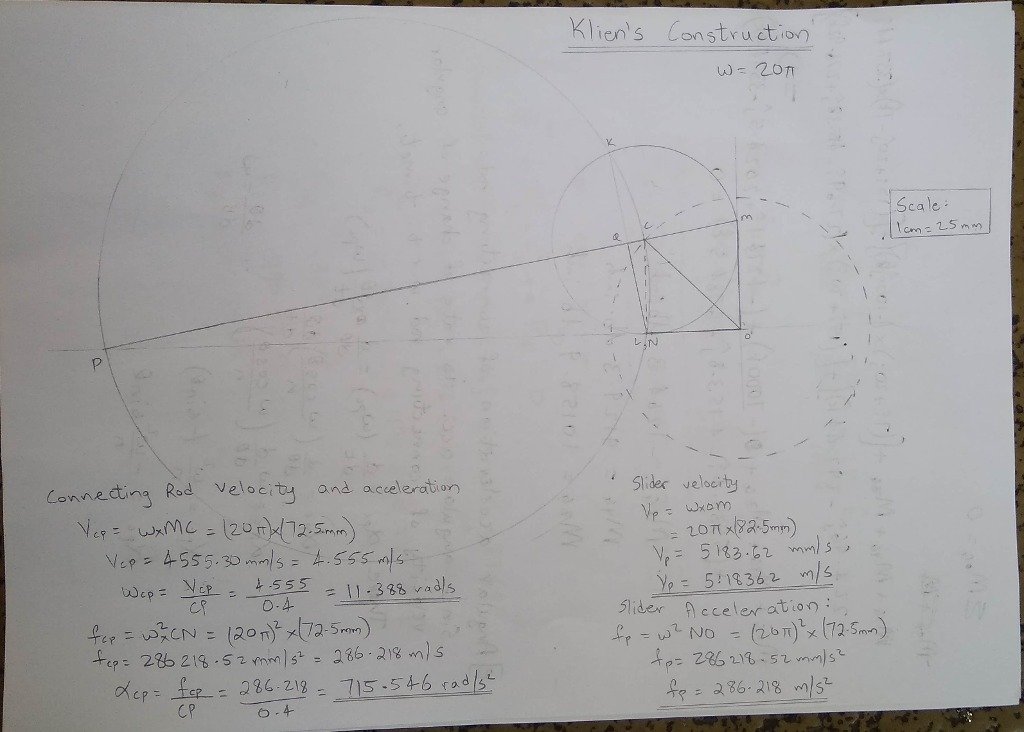 Klien's Construction
ω = 20π
Scale:
1cm = 25 mm
K
M
Q
C
P
L,N
O
Connecting Rod velocity and acceleration
Vcp = ω×MC = (20π)×(72.5mm)
Vcp = 4555.30 mm/s = 4.555 m/s
ωcp = Vcp/CP = 4.555/0.4 = 11.388 rad/s
fcp = ω²×CN = (20π)² × (72.5mm)
fcp = 286218.52 mm/s² = 286.218 m/s
αcp = fcp/CP = 286.218/0.4 = 715.546 rad/s²
Slider velocity
Vp = ω×om
= 20π × (82.5mm)
Vp = 5183.62 mm/s
Vp = 5.18362 m/s
Slider Acceleration:
fp = ω² NO = (20π)² × (72.5mm)
fp = 286218.52 mm/s²
fp = 286.218 m/s²